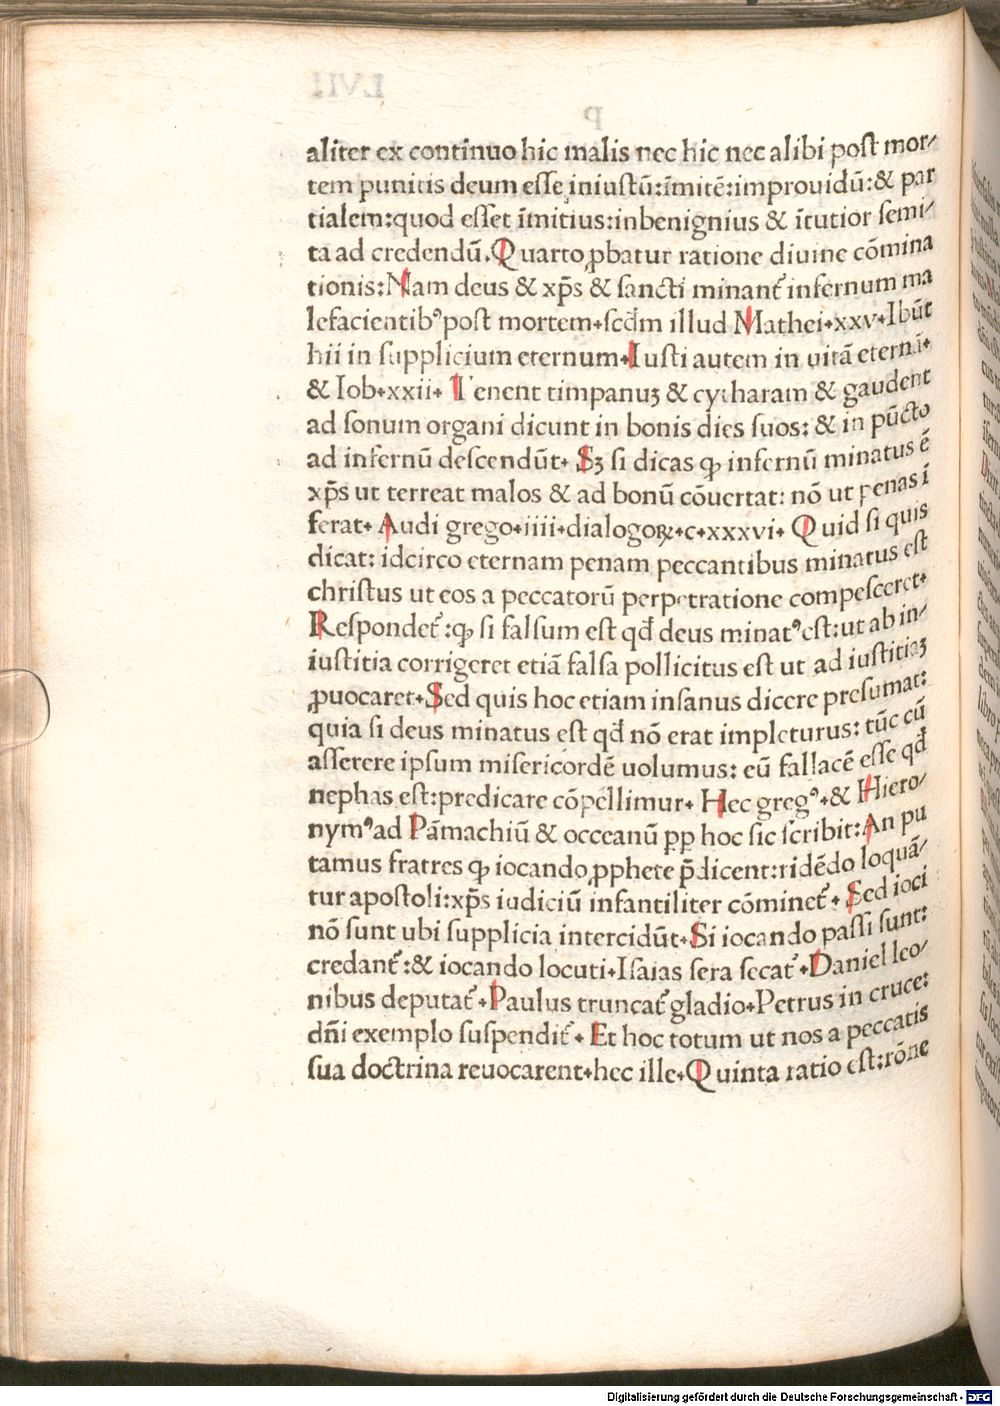 aliter ex continuo hic malis nec hic nec alibi post mor/
tem punitis deum esse iniustū:īmitē:improuidū:& par
tialem:quod esset īmitius:inbenignius & ītutior semi/
ta ad credendū. Quarto ꝓbatur ratione diuine cōmina
tionis: Nam deus & xp̄s & sancti minant᷑ infernum ma
lefacientibꝰ post mortem. scd̄m illud Mathei.xxv. Ibūt
hii in supplicium eternum. Iusti autem in uitā eternā.
& Iob.xxii. Tenent timpanuʒ & cytharam & gaudent
ad sonum organi dicunt in bonis dies suos: & in pūcto
ad infernū descendūt. Sʒ si dicas ꝙ infernū minatus ē
xp̄s ut terreat malos & ad bonū cōuertat: nō ut penas ī
ferat. Audi grego.iiii.dialogoꝝ.c.xxxvi. Quid si quis
dicat: idcirco eternam penam peccantibus minatus est
christus ut eos a peccatorū perpetratione compesceret.
Respondet᷑:ꝙ si falsum est qđ deus minatꝰ est:ut ab in/
iustitia corrigeret etiā falsa pollicitus est ut ad iustitiaʒ
ꝓuocaret. Sed quis hoc etiam insanus dicere presumat:
quia si deus minatus est qđ nō erat impleturus: tūc cū
asserere ipsum misericordē uolumus: eū fallacē esse qđ
nephas est:predicare cōpellimur. Hec gregꝰ.& Hiero/
nymꝰ ad Pāmachiū & occeanū ꝓꝑ hoc sic scribit: An pu
tamus fratres ꝙ iocando ꝓphete p̄dicent:ridēdo loquā/
tur apostoli:xp̄s iudiciū infantiliter cōminet᷑. Sed ioci
nō sunt ubi supplicia intercidūt. Si iocando passi sunt:
credant᷑:& iocando locuti. Isaias sera secat᷑. Daniel leo/
nibus deputat᷑. Paulus truncat᷑ gladio. Petrus in cruce:
dn̄i exemplo suspendit᷑. Et hoc totum ut nos a peccatis
sua doctrina reuocarent. hec ille. Quinta ratio est:rōne
Digitalisierung gefördert durch die Deutsche Forschungsgemeinschaft - DFG